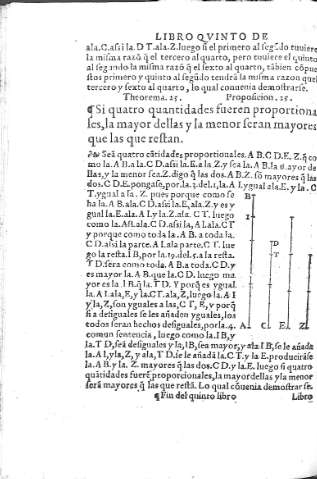 LIBRO QVINTO DE
ala.C.assi la.D T.ala.Z.luego si el primero al segũdo tuuiere
la misma razõ q̃ el tercero al quarto, pero tuuiere el quinto
al segundo la misma razõ q̃ el sexto al quarto, tãbien cõpue
stos primero y quinto al segũdo tendrã la misma razon que
tercero y sexto al quarto, lo qual conuenia demostrarse.
Theorema.25. Proposicion.25.
¶ Si quatro quantidades fueren proportiona
les, la mayor dellas y la menor seran mayores
que las que restan.
Seã quatro cãtidades proportionales.A B.C D.E.Z.q̃ co
mo la.A B.a la.C D.assi la.E.a la.Z.y sea la.A B.la mayor de
llas, y la menor sea.Z.digo q̃ las dos.A B.Z.sõ mayores q̃ las
dos.C D.E.pongase, por la.3.del.1.la.A I.ygual ala.E.y la.C
T.ygual a la.Z. pues porque como se
ha la.A B.ala.C D.assi la.E,ala.Z.y es y
gual la.E.ala.A I.y la.Z.ala.CT. luego
como la.A B.ala.C D.assi la,A I.ala,C T
y porque como toda la.A B.a toda la.
C D.assi la parte.A I.ala parte,C T.lue
go la resta.I B,por la.19.del.5.a la resta.
T D.sera como toda.A B.a toda.C D.y
es mayor la.A B.que la.C D. luego ma
yor es la.I B.q̃ la.T D. Y porq̃ es ygual
la.A I.ala,E,y la.CT.ala,Z,luego la.A I
y la,Z,son yguales a las,C T,E, y porq̃
si a desiguales se les añaden yguales, los
todos seran hechos desiguales,por la.4.
comun sentencia, luego como la.I B,y
la.T D,seã desiguales y la,I B,sea mayor,y ala I B,se le añada
la.A I,y la,Z,y ala,T D.se le añadã la.C T.y la E.produzirãse
la.A B.y la.Z. mayores q̃ las dos.C D.y la.E. luego si quatro
quãtidades fuerẽ proporcionales,la mayor dellas y la menor
serã mayores q̃ las que restã. Lo qual cõuenia demostrarse.
B
I
D
T
A C E Z
¶ Fin del quinto libro
Libro